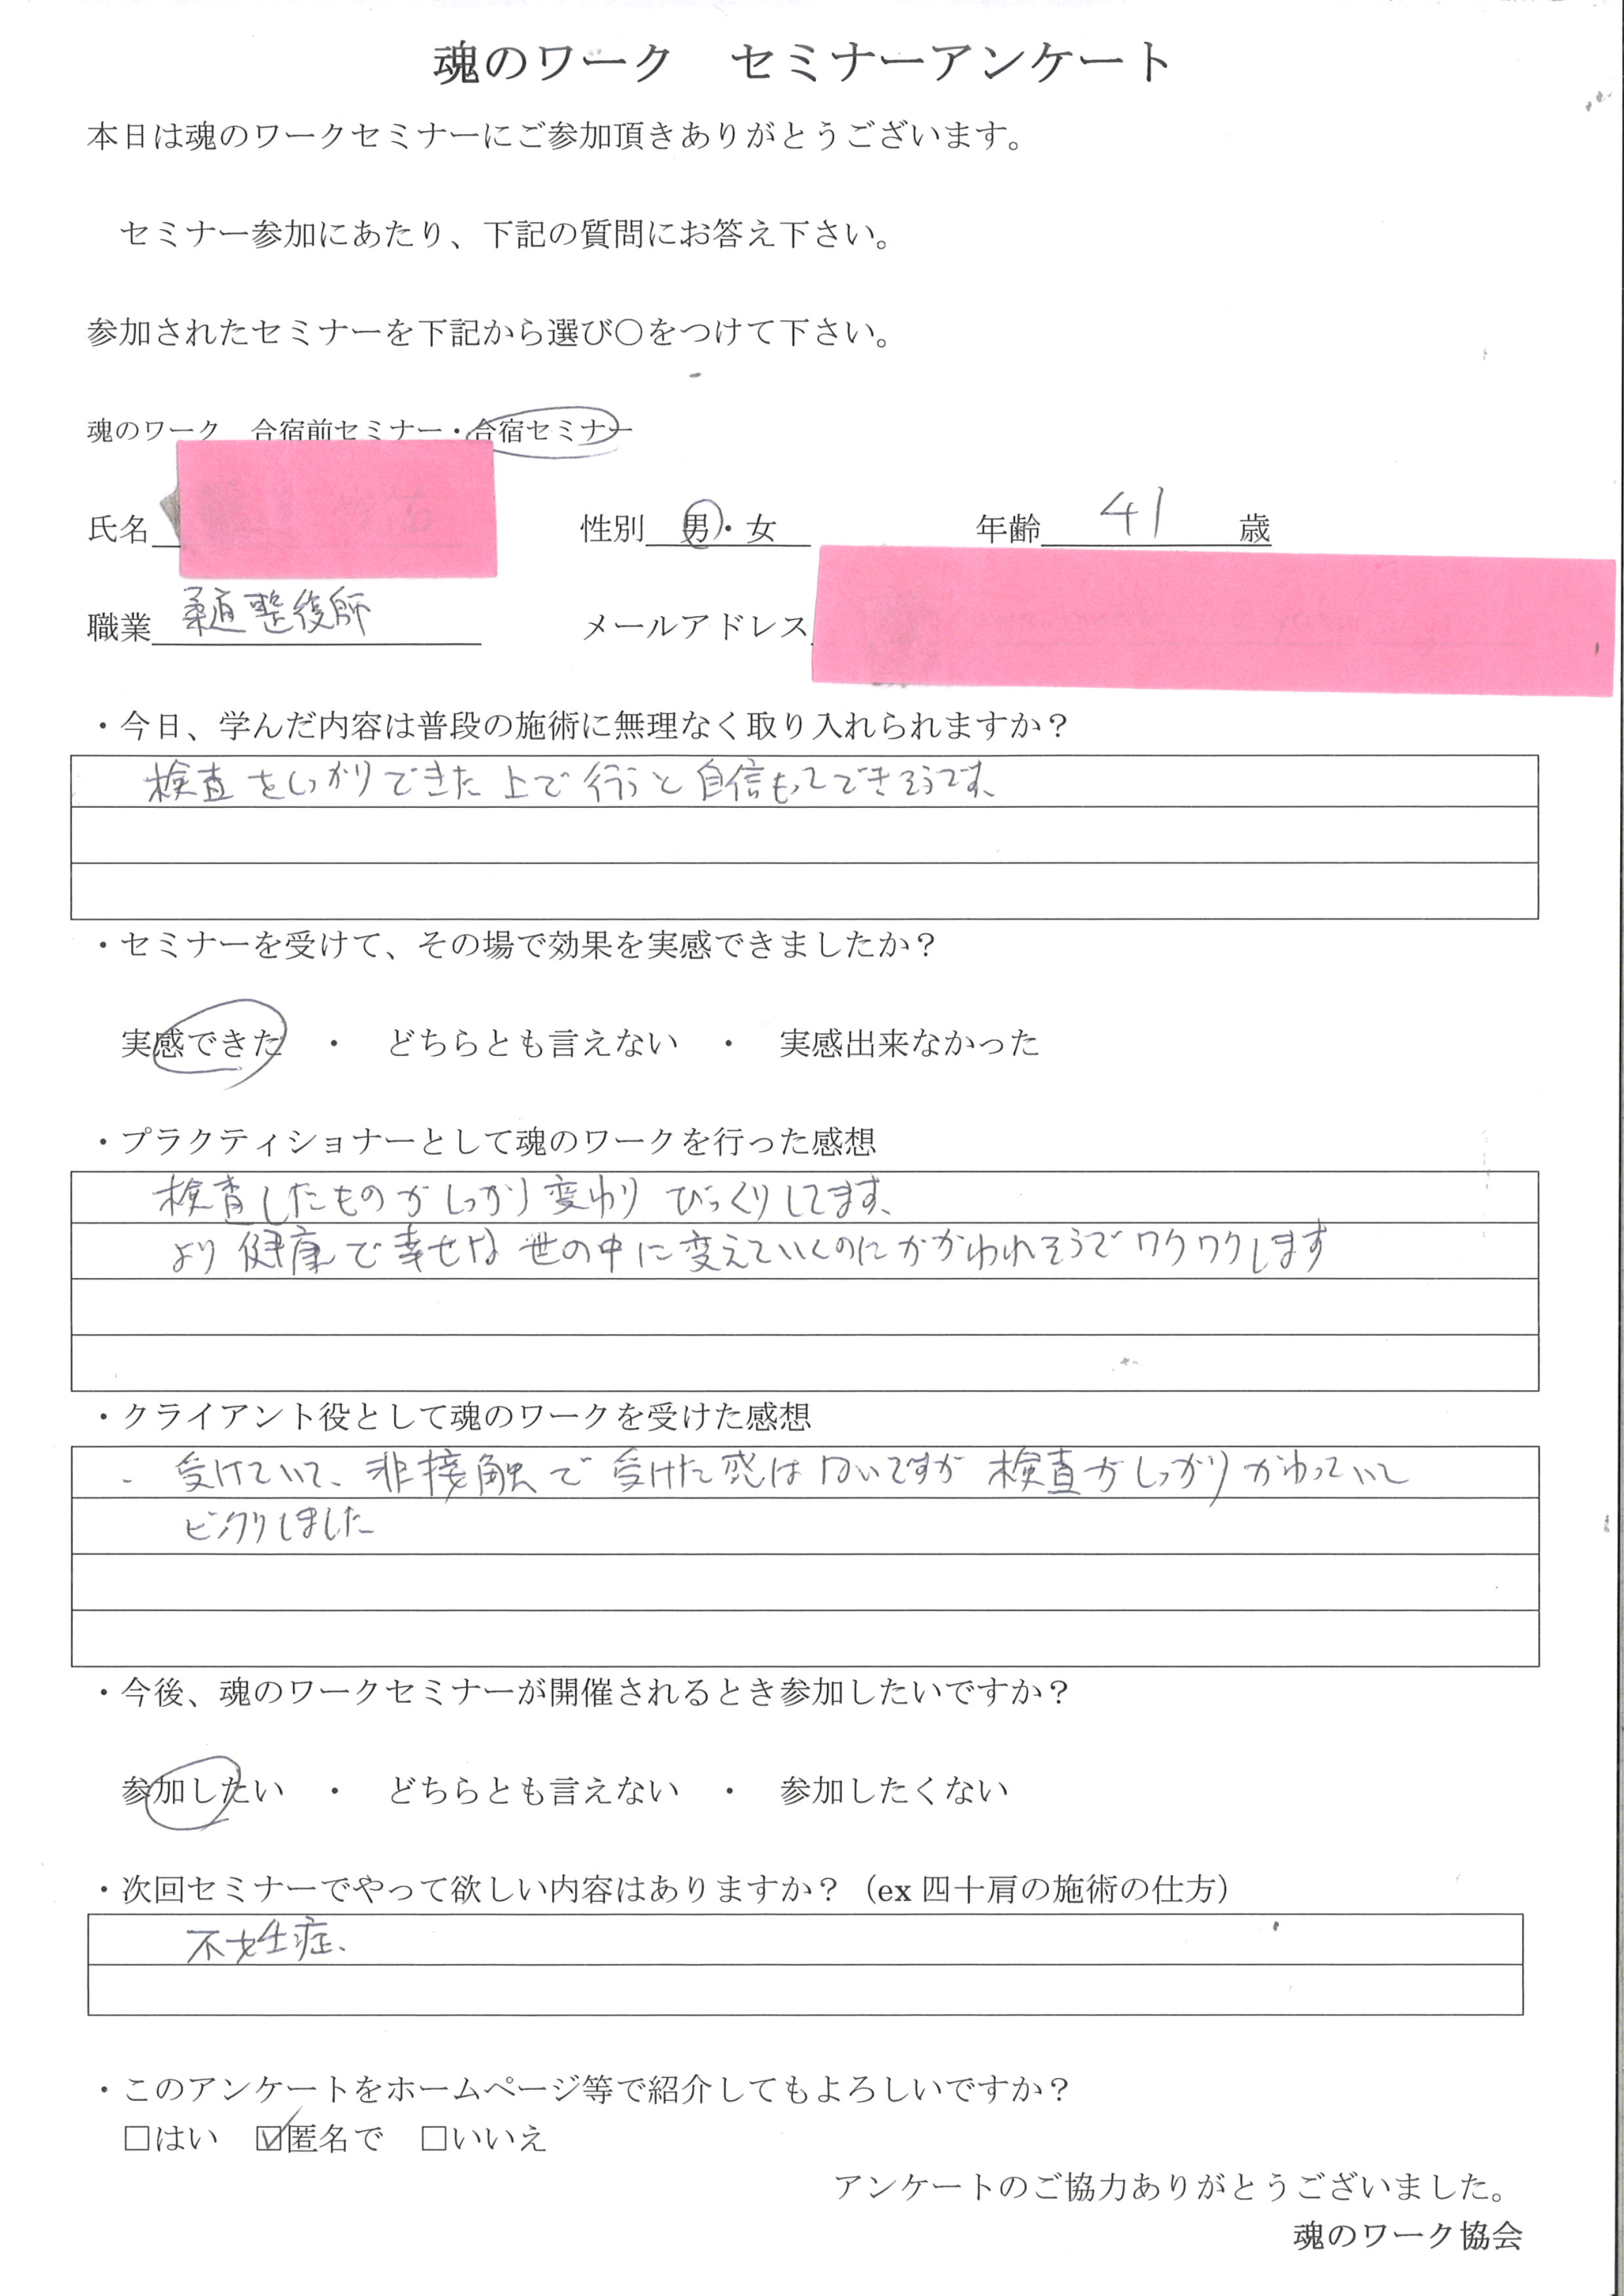 魂のワーク　セミナーアンケート
本日は魂のワークセミナーにご参加頂きありがとうございます。
セミナー参加にあたり、下記の質問にお答え下さい。
参加されたセミナーを下記から選び〇をつけて下さい。
魂のワーク　合宿前セミナー・合宿セミナー
氏名　性別　男・女　年齢 41 歳
職業 柔道整復師　メールアドレス
・今日、学んだ内容は普段の施術に無理なく取り入れられますか？
検査をしっかりできた上で行うと自信もってできそうです、
・セミナーを受けて、その場で効果を実感できましたか？
実感できた　・　どちらとも言えない　・　実感出来なかった
・プラクティショナーとして魂のワークを行った感想
検査したものがしっかり変わりびっくりしてます、
より健康で幸せな世の中に変えていくのにかかわれそうでワクワクします
・クライアント役として魂のワークを受けた感想
・受けていて、非接触で受けた感はないですが検査がしっかりかわっていて
ビックリしました
・今後、魂のワークセミナーが開催されるとき参加したいですか？
参加したい　・　どちらとも言えない　・　参加したくない
・次回セミナーでやって欲しい内容はありますか？（ex 四十肩の施術の仕方）
不妊症、
・このアンケートをホームページ等で紹介してもよろしいですか？
□はい　☑匿名で　□いいえ
アンケートのご協力ありがとうございました。
魂のワーク協会